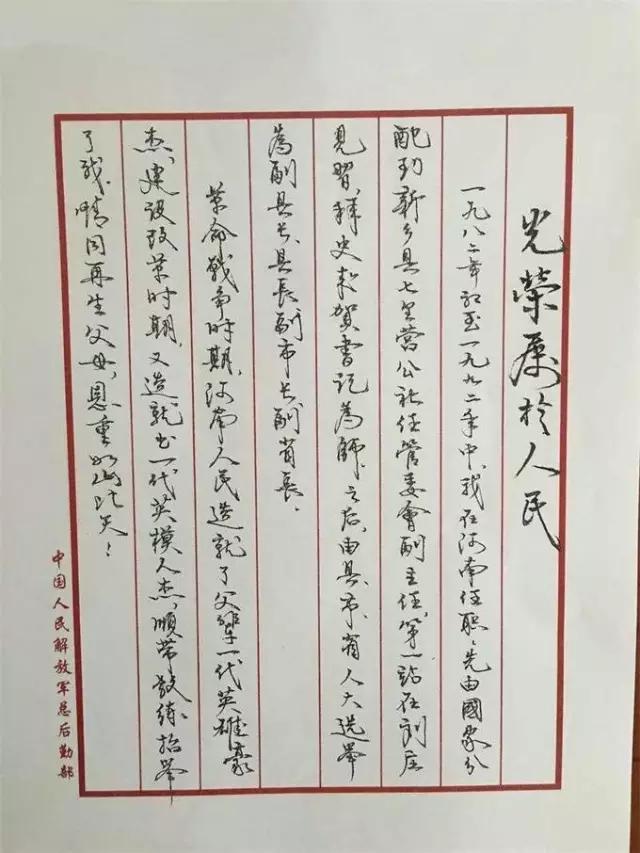 光荣属於人民
一九八二年初至一九九二年中，我在河南任职：先由國家分
配到新乡县七里营公社任管委會副主任，第一站在刘庄
見習，拜史来贺書记為師。之后，由县、市、省人大選举
為副县长、县長、副市长、副省長。
革命战争时期，河南人民造就了父辈一代英雄豪
杰，建设改革时期，又造就出一代英模人杰，順带教练、抬举
了我，情同再生父母，恩重如山比天！
中国人民解放军总后勤部